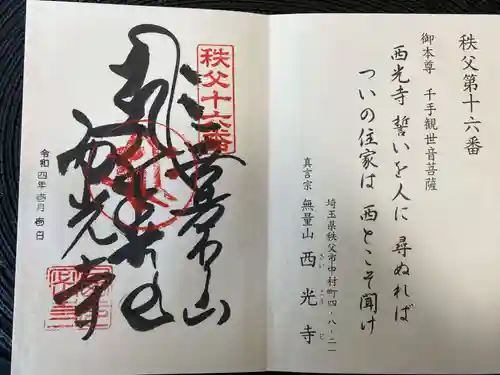 秩父第十六番
御本尊 千手観世音菩薩
西光寺 誓いを人に 尋ぬれば
ついの住家は 西とこそ聞け
埼玉県秩父市中村町四-八-二一
真言宗 無量山 西光寺
さい こう じ
秩父十六番
西光寺
令和四年壱月壱日